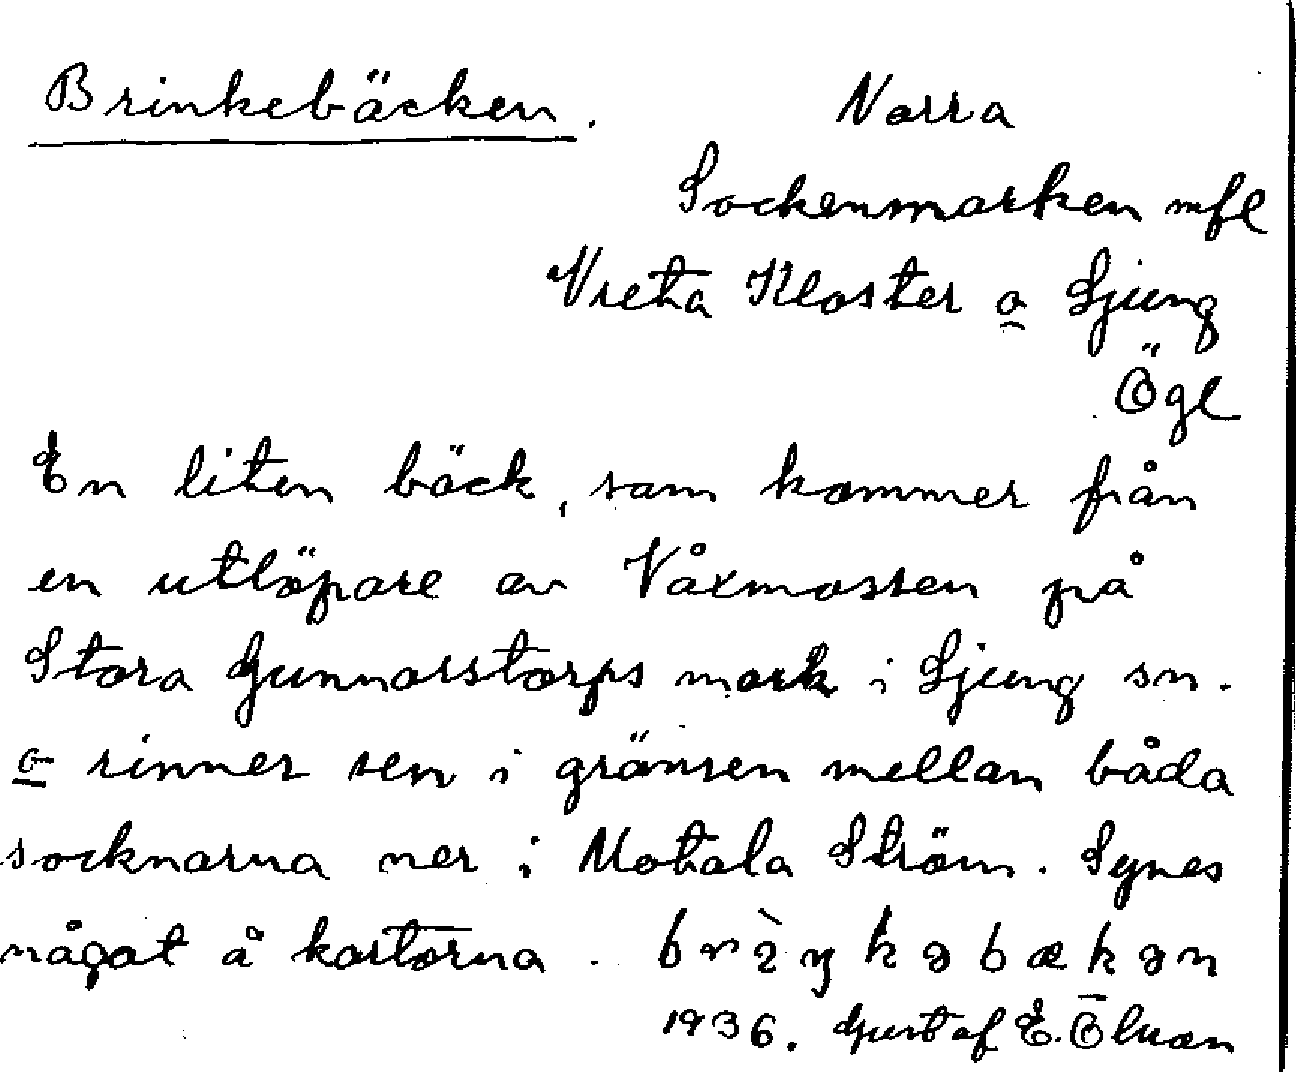 Brinkebäcken. Norra
Sockenmarken mfl
Vreta Kloster o Ljung
Ögl
En liten bäck, som kommer från
en utlöpare av Våxmossen på
Stora Gunnarstorps mark i Ljung sn.
o rinner sen i gränsen mellan båda
socknarna ner i Motala Ström. Synes
något å kartorna. brìŋkəbækən
1936. Gustaf E.